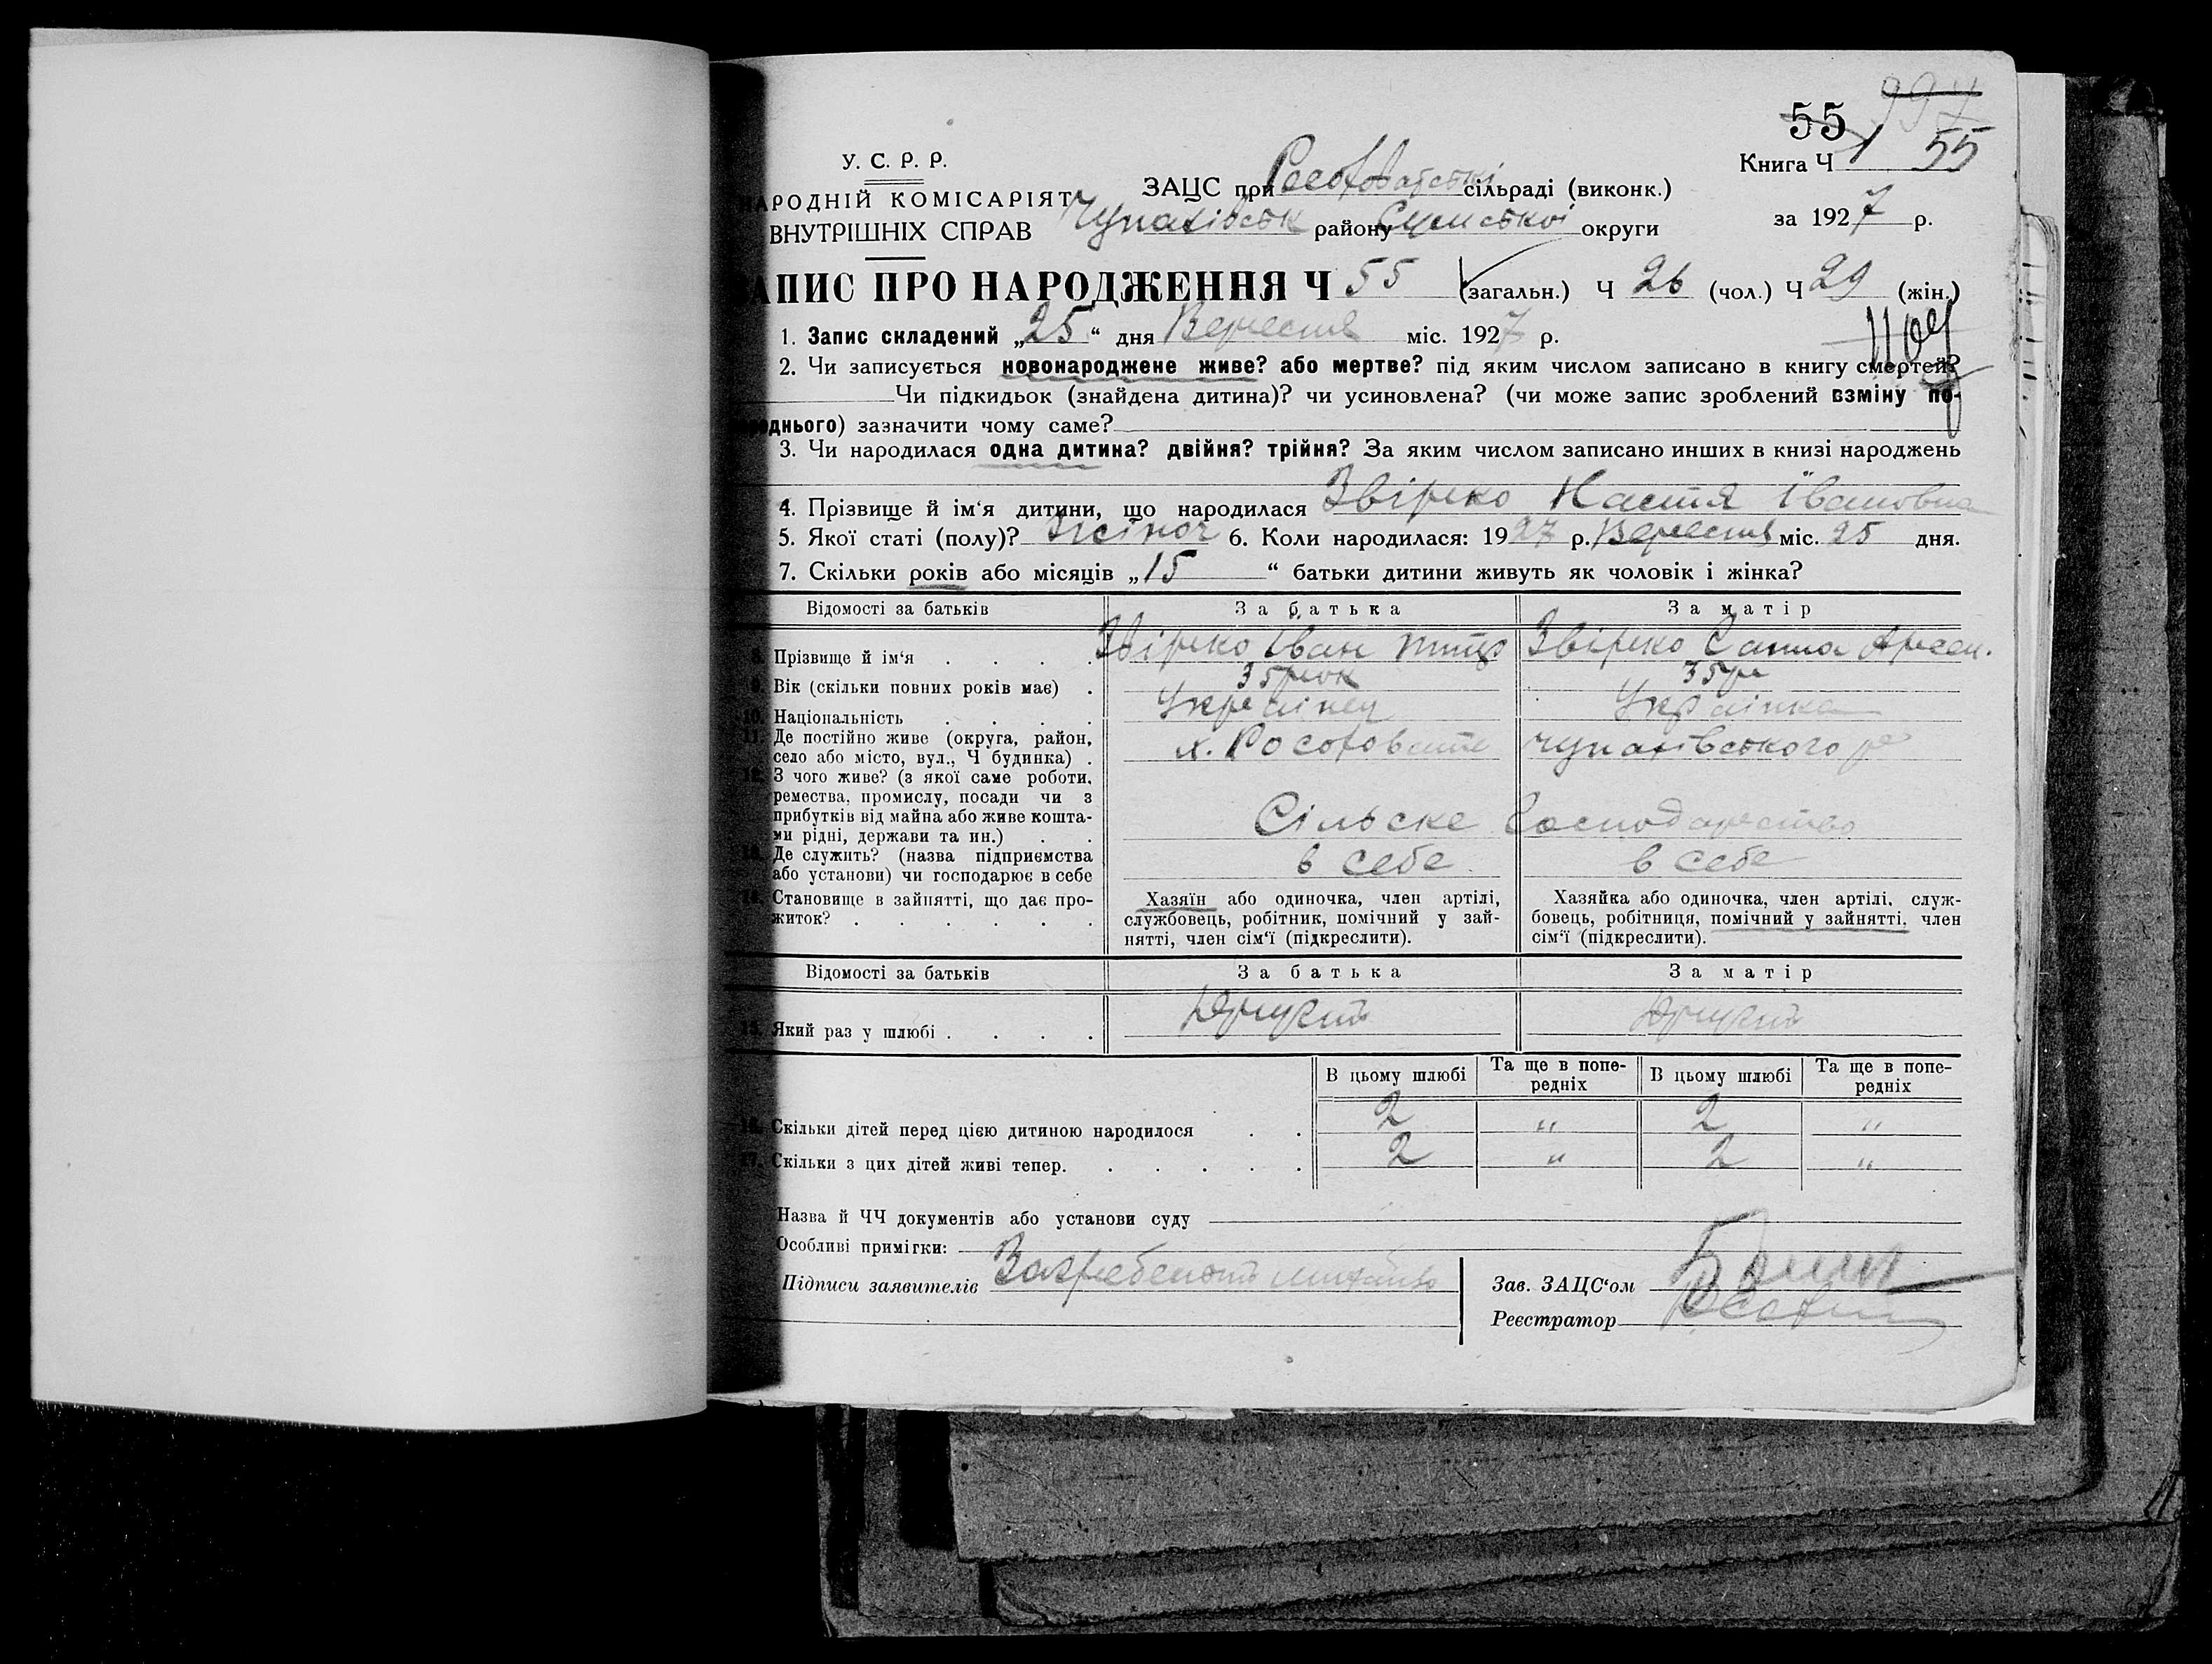 55 997
У. С. Р. Р.
Книга Ч 1 55
НАРОДНІЙ КОМІСАРІЯТ
ЗАЦС при сільраді (виконк.)
ВНУТРІШНІХ СПРАВ
Чупахівськ району Сумської округи
за 1927 р.
ЗАПИС ПРО НАРОДЖЕННЯ Ч 55 (загальн.) Ч 26 (чол.) Ч 29 (жін.)
1. Запис складений „25“ дня Вересня міс. 1927 р.
2. Чи записується новонароджене живе? або мертве? під яким числом записано в книгу смертей?
Чи підкидьок (знайдена дитина)? чи усиновлена? (чи може запис зроблений взміну по-
реднього) зазначити чому саме?
3. Чи народилася одна дитина? двійня? трійня? За яким числом записано инших в книзі народжень
4. Прізвище й ім‘я дитини, що народилася Звірко Настя Івановна
5. Якої статі (полу)? Жіноч 6. Коли народилася: 1927 р. Вересня міс. 25 дня.
7. Скільки років або місяців „15“ батьки дитини живуть як чоловік і жінка?
Відомості за батьків За батька За матір
8. Прізвище й ім‘я Звірко Іван Звірко Ганна Арсен.
9. Вік (скільки повних років має) 35 рок 35 ро
10. Національність Українец Українка
11. Де постійно живе (округа, район,
село або місто, вул., Ч будинка) х. Чупахівського ра
12. З чого живе? (з якої саме роботи,
ремества, промислу, посади чи з
прибутків від майна або живе кошта-
ми рідні, держави та ин.) Сільске Господарство
13. Де служить? (назва підприємства
або установи) чи господарює в себе в себе в себе
14. Становище в зайнятті, що дає про-
житок?
Хазяїн або одиночка, член артілі,
службовець, робітник, помічний у зай-
нятті, член сім‘ї (підкреслити).
Хазяйка або одиночка, член артілі, служ-
бовець, робітниця, помічний у зайнятті, член
сім‘ї (підкреслити).
Відомості за батьків За батька За матір
15. Який раз у шлюбі
В цьому шлюбі Та ще в попе-
редніх В цьому шлюбі Та ще в попе-
редніх
16. Скільки дітей перед цією дитиною народилося 2 „ 2 „
17. Скільки з цих дітей живі тепер. 2 „ 2 „
Назва й ЧЧ документів або установи суду
Особливі примігки:
Підписи заявителів
Зав. ЗАЦС‘ом
Реєстратор